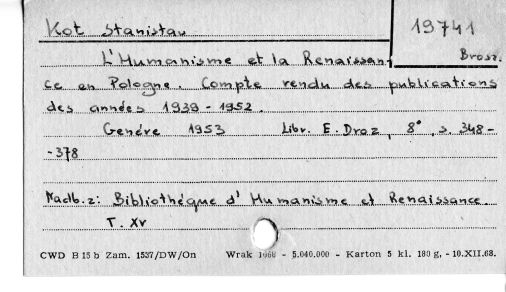 Kot Stanisław
19741
Brosz.
L'Humanisme et la Renaissan-
ce en Pologne. Compte rendu des publications
des années 1939-1952.
Genève 1953 Libr. E. Droz, 8°, s. 348-
-378
Nadb. z: Bibliothéque d'Humanisme et Renaissance.
T. XV
CWD B 15 b Zam. 1537/DW/On Wrak 1968 - 5.040.000 - Karton 5 kl. 180 g. - 10.XII.68.